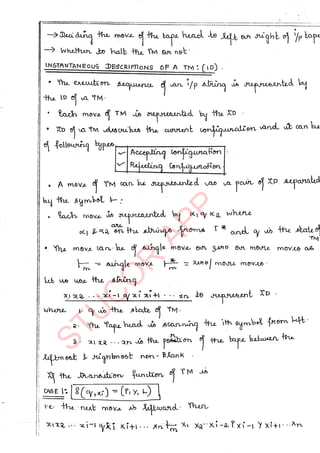 → Deciding the move of the tape head to left or right of i/p tape
→ Whether to halt the TM or not.
INSTANTANEOUS DESCRIPTIONS OF A TM: (ID)
• The execution sequence of an i/p string is represented by
the ID of a TM.
• Each move of TM is represented by the ID
• ID of a TM describes the current configuration and it can be
of following types
✓ Accepting Configuration
✓ Rejecting Configuration
• A move of TM can be represented as a pair of ID separated
by the symbol ⊢:
• Each move is represented by α1 q α2 where
α1 & α2 are the strings from Γ* and q is the state of TM
• The move can be of single move or zero or more moves as
⊢m = single move ⊢*m = zero / more moves.
Let us use the string
x1 x2 ... xi-1 q xi xi+1 ... xn to represent ID.
where 1. q is the state of TM.
2. The Tape head is scanning the ith symbol from left.
3. x1 x2 ... xn is the position of the tape between the
leftmost & rightmost non-Blank.
If the transition function of TM is
CASE 1: δ(q, xi) = (P, Y, L)
i.e the next move is leftward. Then
x1 x2 ... xi-1 q xi xi+1 ... xn ⊢m x1 x2 ... xi-2 P xi-1 Y xi+1 ... xn
STUCOR APP